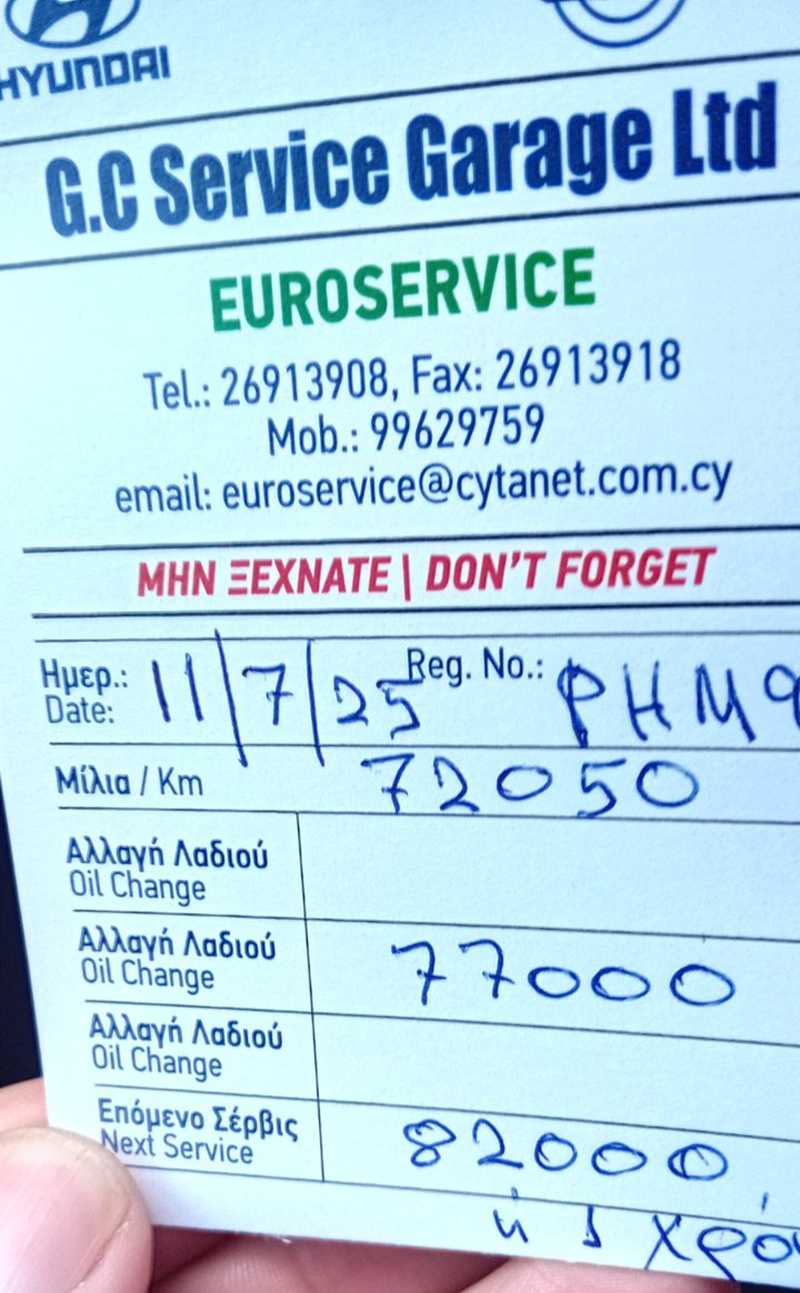 HYUNDAI
G.C Service Garage Ltd
EUROSERVICE
Tel.: 26913908, Fax: 26913918
Mob.: 99629759
email: euroservice@cytanet.com.cy
ΜΗΝ ΞΕΧΝΑΤΕ | DON'T FORGET
Ημερ.: 11/7/25 Reg. No.: PHM9
Date:
Μίλια / Km 72050
Αλλαγή Λαδιού
Oil Change
Αλλαγή Λαδιού 77000
Oil Change
Αλλαγή Λαδιού
Oil Change
Επόμενο Σέρβις 82000
Next Service
ή 1 χρό